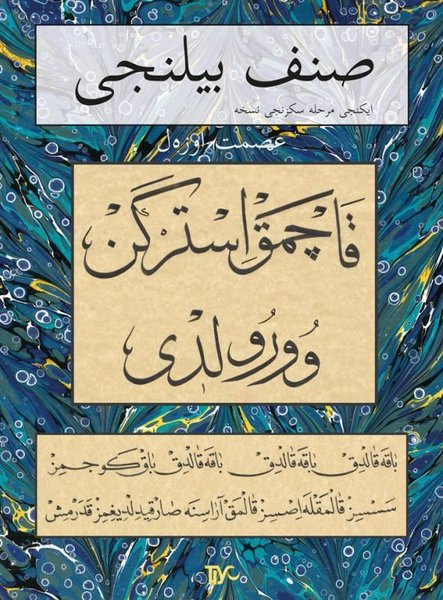 صنف بیلنجی
ایکنجی مرحله سکزنجی نسخه
عصمت اوزه‌ل
قَاچمَقْ اِسْتَرْكَنْ
وُورُولدِی
باقه قالدِقْ باقه قالدِقْ باقه قالدِقْ باق كوجمزْ
سسسزْ قالمقله اصسزْ قالمقْ آراسنه صارقیدلدیغمزْ قدرمشْ